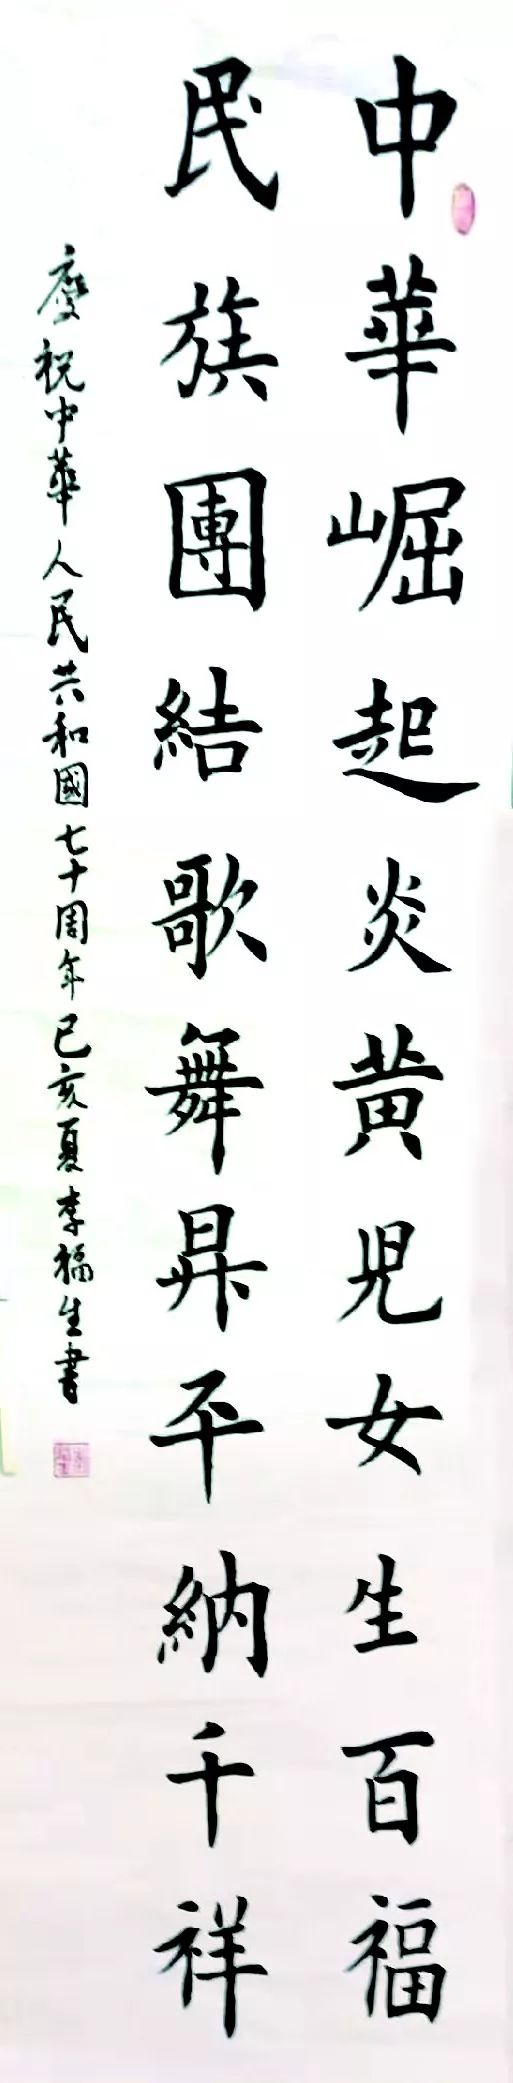 中華崛起炎黃兒女生百福
民族團結歌舞昇平納千祥
慶祝中華人民共和國七十周年己亥夏李福生書